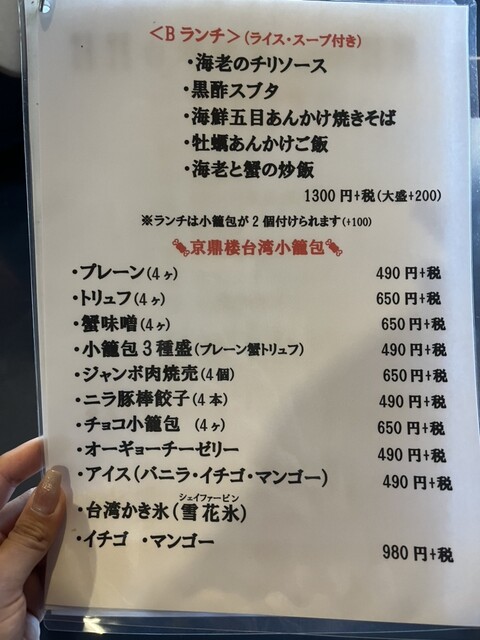 ＜Bランチ＞(ライス・スープ付き)
・海老のチリソース
・黒酢スブタ
・海鮮五目あんかけ焼きそば
・牡蠣あんかけご飯
・海老と蟹の炒飯
1300円+税(大盛+200)
※ランチは小籠包が2個付けられます(+100)
京鼎楼台湾小籠包
・プレーン(4ヶ) 490円+税
・トリュフ(4ヶ) 650円+税
・蟹味噌(4ヶ) 650円+税
・小籠包3種盛(プレーン蟹トリュフ) 490円+税
・ジャンボ肉焼売(4個) 650円+税
・ニラ豚棒餃子(4本) 490円+税
・チョコ小籠包 (4ヶ) 650円+税
・オーギョーチーゼリー 490円+税
・アイス(バニラ・イチゴ・マンゴー) 490円+税
シェイファービン
・台湾かき氷(雪花氷)
・イチゴ ・マンゴー 980円+税